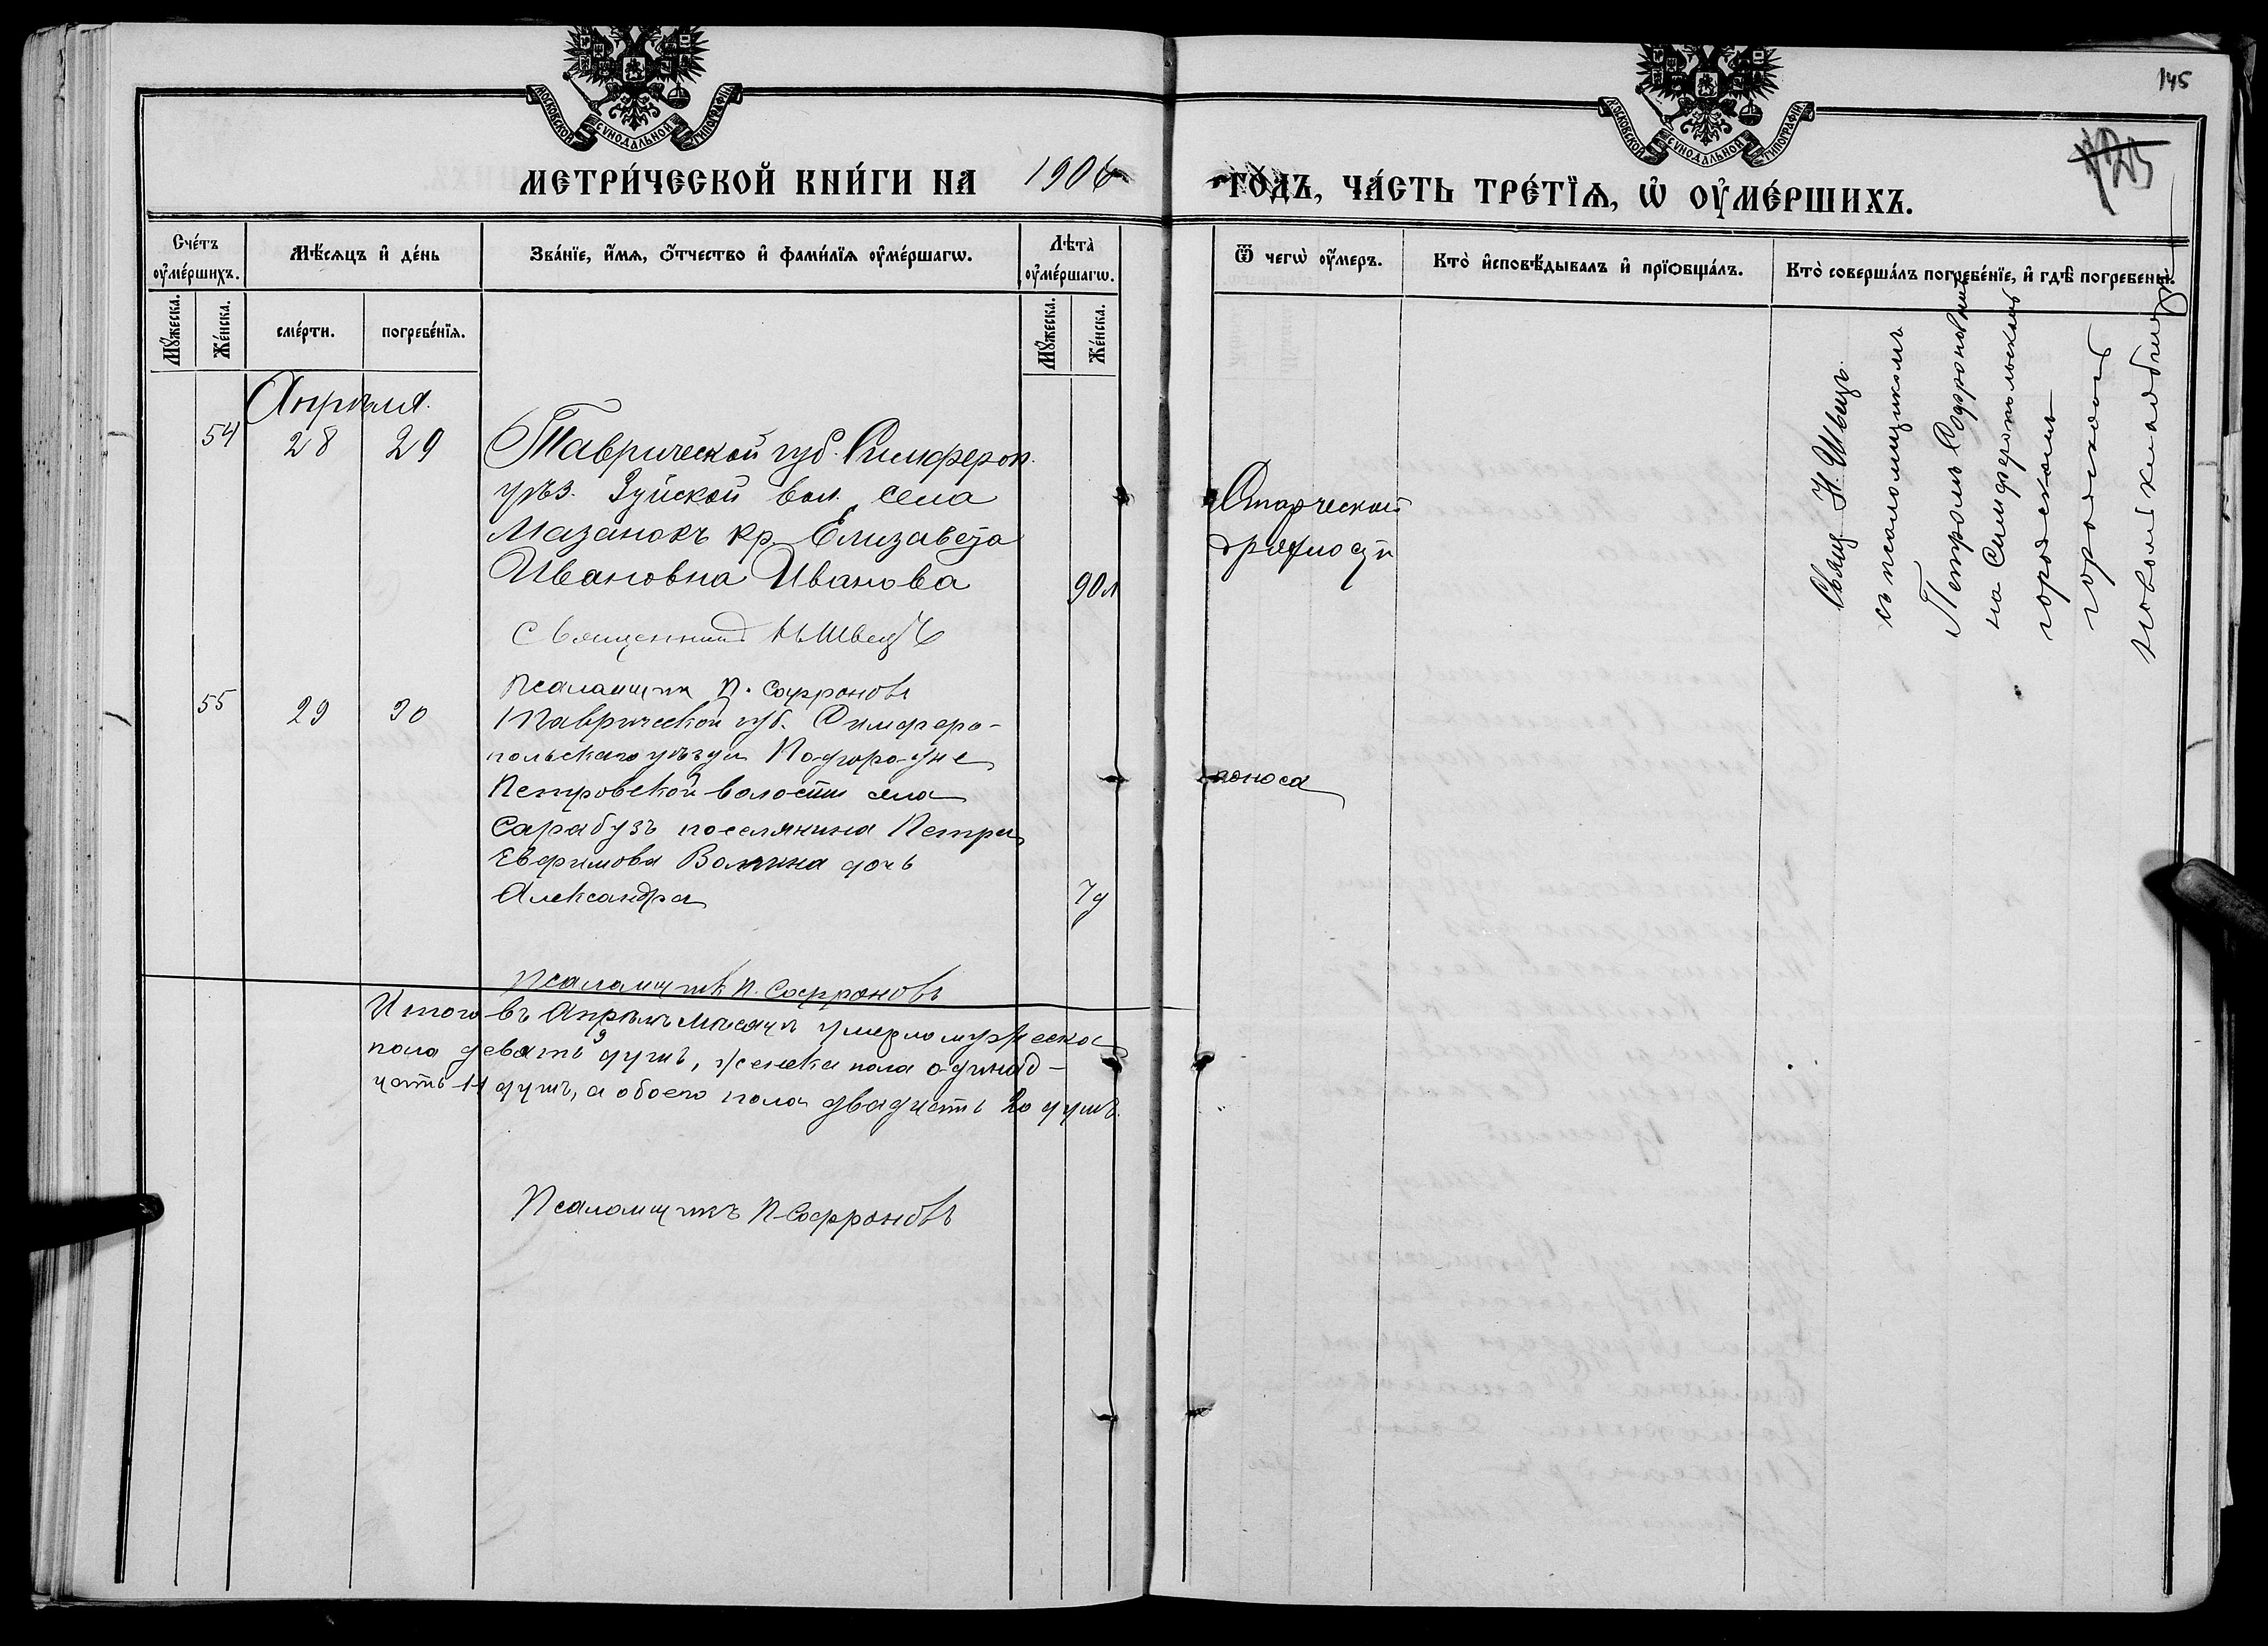 145
125
МОСКОВСКОЙ СѴНОДАЛЬНОЙ ТИПОГРАФІИ
МОСКОВСКОЙ СѴНОДАЛЬНОЙ ТИПОГРАФІИ
МЕТРИ́ЧЕСКОЙ КНИ́ГИ НА 1906 ГО́ДЪ, ЧА́СТЬ ТРЕ́ТЇѦ, Ѡ҆ ОУ҆МЕ́РШИХЪ.
Сче́тъ оу҆ме́ршихъ.
Мѣ́сяцъ и҆ де́нь
Зва́нїе, и҆́мѧ, ѻ҆́тчество и҆ фами́лїѧ оу҆ме́ршагѡ.
Лѣта̀ оу҆ме́ршагѡ.
Ѿ чегѡ̀ оу҆́меръ.
Кто̀ и҆сповѣ́дывалъ и҆ прїѡбща́лъ.
Кто̀ соверша́лъ погребе́нїе, и҆ гдѣ̀ погребены̀.
Мꙋ́жеска.
Же́нска.
сме́рти.
погребе́нїѧ.
Мꙋ́жеска.
Же́нска.
Апрѣля.
54 28 29
Таврической губ. Симфероп.
уѣз. Зуйской вол. села
Мазанокъ кр. Елизавета
Ивановна Иванова
90 л
Старческой
дряхлости
Свящ. Н. Швецъ
съ псаломщикомъ
Петромъ Софроновымъ
на Симферопольскомъ
городскомъ
городскомъ
новомъ кладбищѣ
Священникъ Н. Швецъ
Псаломщикъ П. Софроновъ
55 29 30
Таврической губ. Симферо-
польскаго уѣзда Подгородне
Петровской волости села
Сарабузъ поселянина Петра
Евфимова Волгина дочь
Александра
7 д
поноса
Псаломщикъ П. Софроновъ
Итого въ Апрѣлѣ мѣсяцѣ умерло мужеска
пола девять 9 душъ, женска пола одинад-
цать 11 душъ, а обоего пола двадцать 20 душъ.
Псаломщикъ П. Софроновъ